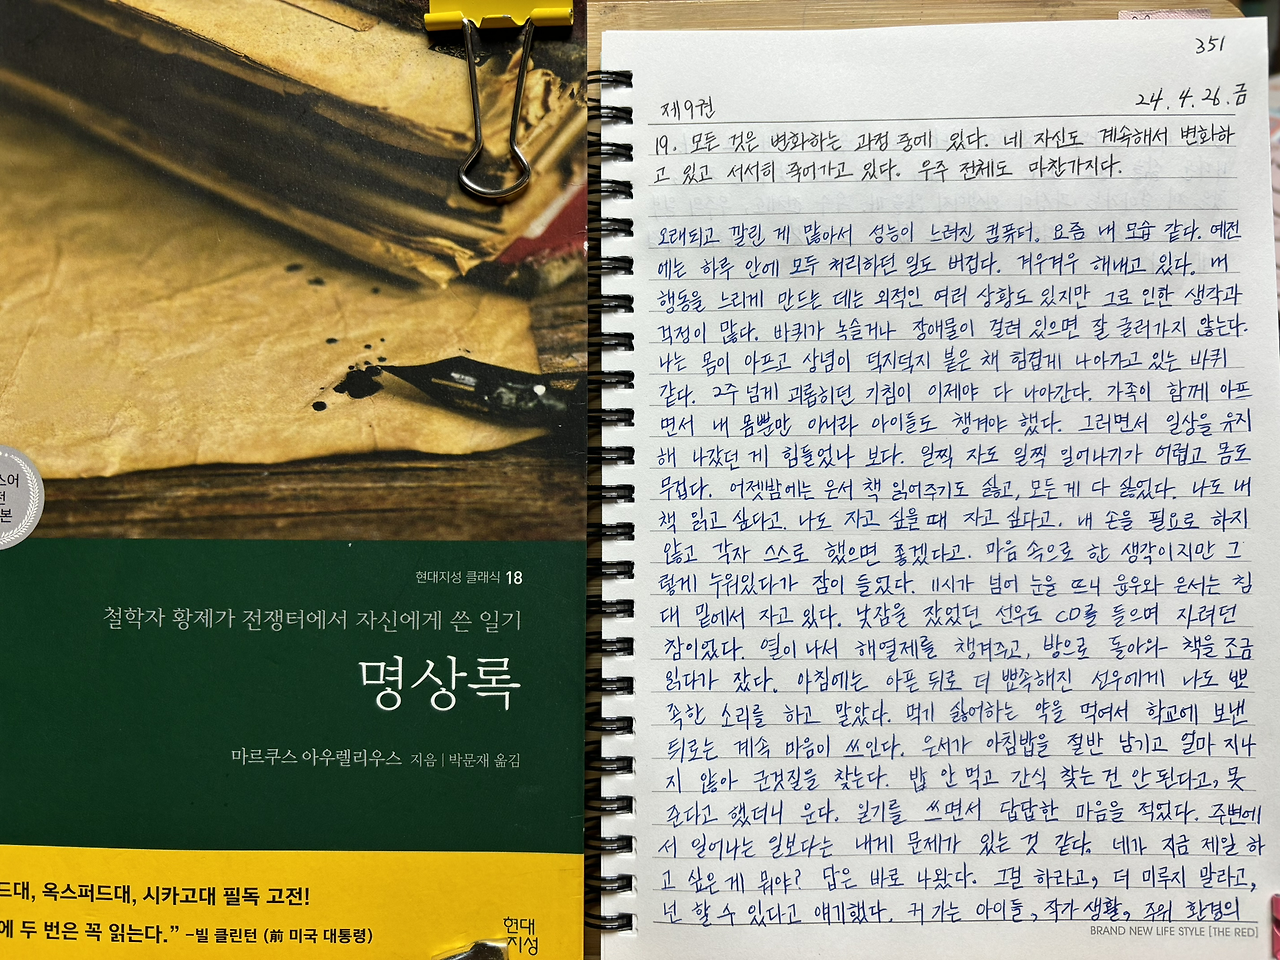 스어
전
본
현대지성 클래식 18
철학자 황제가 전쟁터에서 자신에게 쓴 일기
명상록
마르쿠스 아우렐리우스 지음 | 박문재 옮김
드대, 옥스퍼드대, 시카고대 필독 고전!
에 두 번은 꼭 읽는다.” -빌 클린턴 (前 미국 대통령)
현대
지성
351
제9권
24. 4. 26. 금
19. 모든 것은 변화하는 과정 중에 있다. 네 자신도 계속해서 변화하
고 있고 서서히 죽어가고 있다. 우주 전체도 마찬가지다.
오래되고 깔린 게 많아서 성능이 느려진 컴퓨터. 요즘 내 모습 같다. 예전
에는 하루 안에 모두 처리하던 일도 버겁다. 겨우겨우 해내고 있다. 내
행동을 느리게 만드는 데는 외적인 여러 상황도 있지만 그로 인한 생각과
걱정이 많다. 바퀴가 녹슬거나 장애물이 걸려 있으면 잘 굴러가지 않는다.
나는 몸이 아프고 상념이 덕지덕지 붙은 채 힘겹게 나아가고 있는 바퀴
같다. 2주 넘게 괴롭히던 기침이 이제야 다 나아간다. 가족이 함께 아프
면서 내 몸뿐만 아니라 아이들도 챙겨야 했다. 그러면서 일상을 유지
해 나갔던 게 힘들었나 보다. 일찍 자도 일찍 일어나기가 어렵고 몸도
무겁다. 어젯밤에는 은서 책 읽어주기도 싫고, 모든 게 다 싫었다. 나도 내
책 읽고 싶다고. 나도 자고 싶을 때 자고 싶다고. 내 손을 필요로 하지
않고 각자 스스로 했으면 좋겠다고. 마음 속으로 한 생각이지만 그
렇게 누워있다가 잠이 들었다. 11시가 넘어 눈을 뜨니 윤우와 은서는 침
대 밑에서 자고 있다. 낮잠을 잤었던 선우도 CD를 들으며 자려던
참이었다. 열이 나서 해열제를 챙겨주고, 방으로 돌아와 책을 조금
읽다가 잤다. 아침에는 아픈 뒤로 더 뾰족해진 선우에게 나도 뾰
족한 소리를 하고 말았다. 먹기 싫어하는 약을 먹여서 학교에 보낸
뒤로는 계속 마음이 쓰인다. 은서가 아침밥을 절반 남기고 얼마 지나
지 않아 군것질을 찾는다. 밥 안 먹고 간식 찾는 건 안 된다고, 못
준다고 했더니 운다. 일기를 쓰면서 답답한 마음을 적었다. 주변에
서 일어나는 일보다는 내게 문제가 있는 것 같다. 네가 지금 제일 하
고 싶은 게 뭐야? 답은 바로 나왔다. 그걸 하라고, 더 미루지 말라고,
넌 할 수 있다고 얘기했다. 커 가는 아이들, 작가 생활, 주위 환경의
BRAND NEW LIFE STYLE [THE RED]